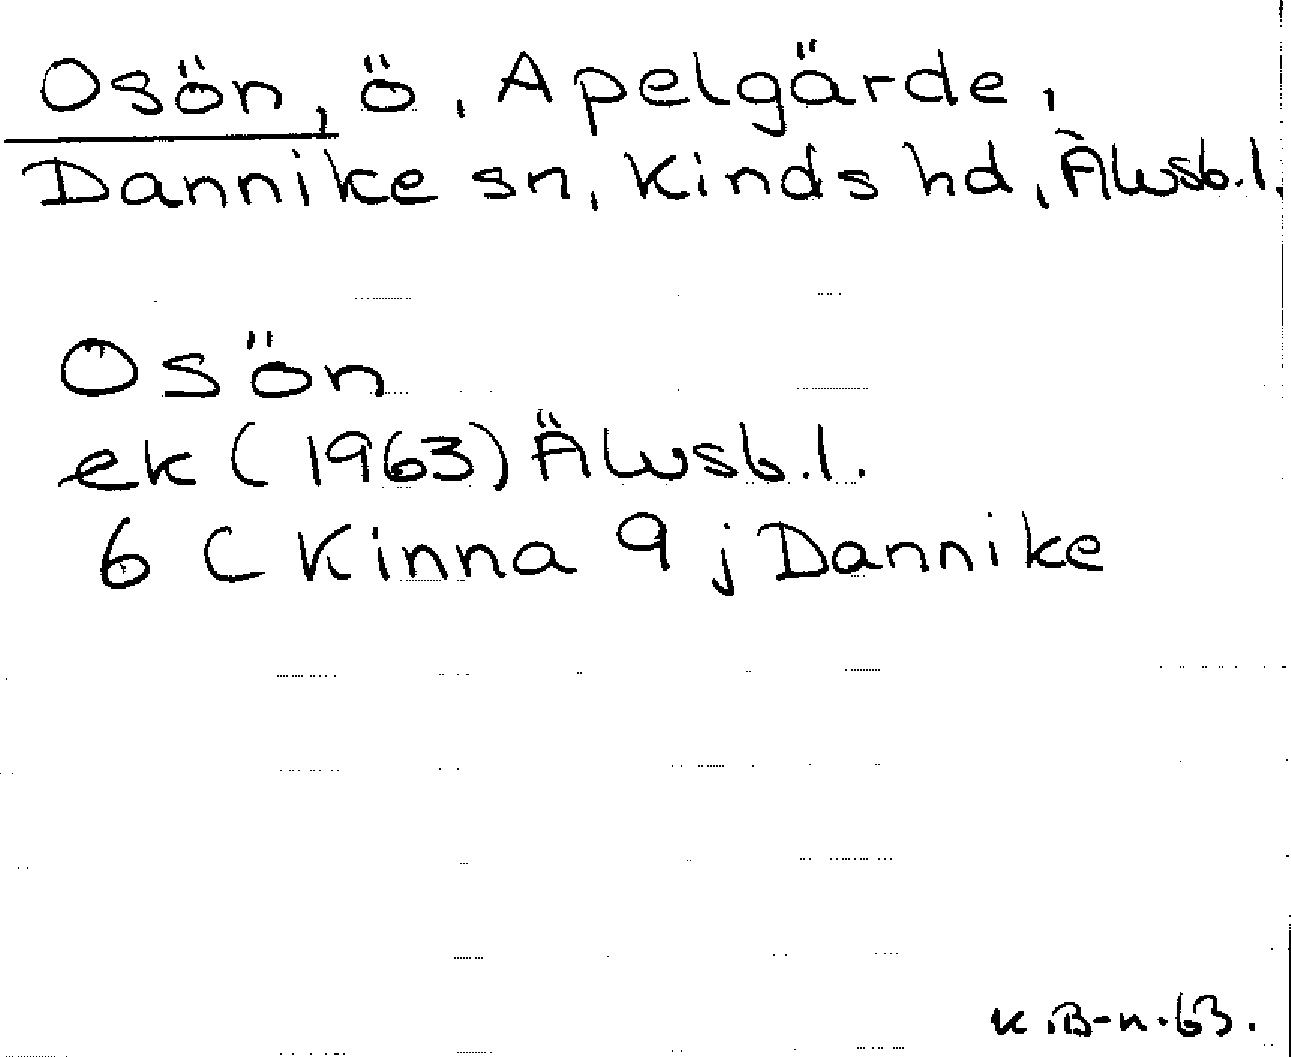 Osön, ö, Apelgärde,
Dannike sn, Kinds hd, Älvsb.l.
Osön
ek (1963) Älvsb.l.
6 C Kinna 9 j Dannike
K.B-n.63.